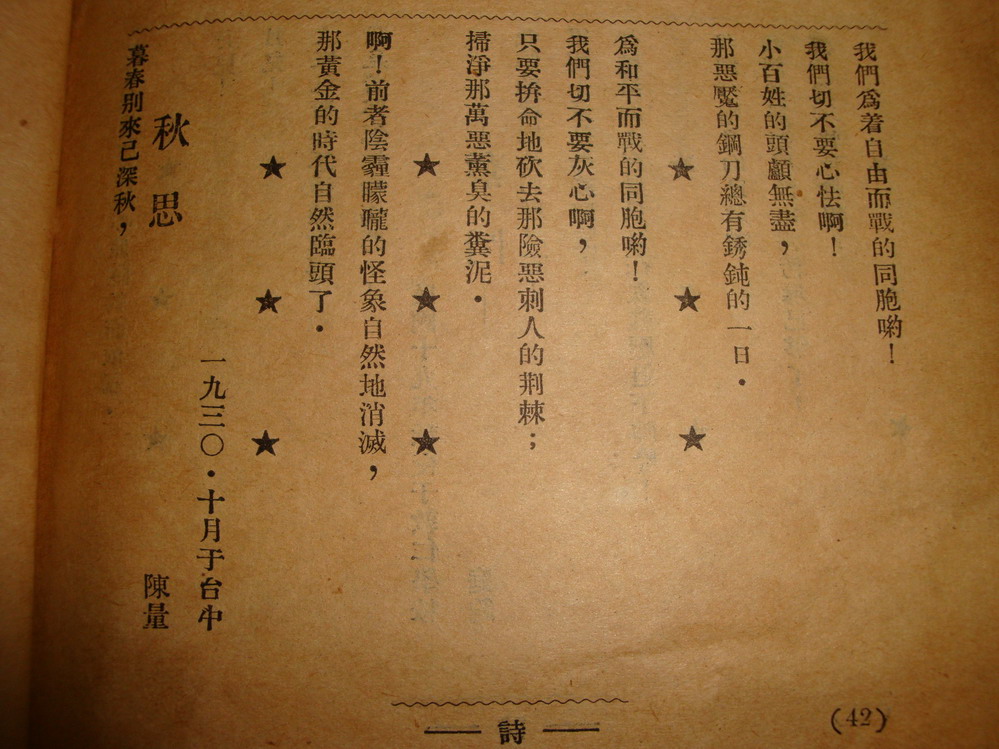 我們爲着自由而戰的同胞喲！
我們切不要心怯啊！
小百姓的頭顱無盡，
那惡魘的鋼刀總有銹鈍的一日．
★ ★ ★
爲和平而戰的同胞喲！
我們切不要灰心啊，
只要拚命地砍去那險惡刺人的荆棘；
掃淨那萬惡薰臭的糞泥．
★ ★ ★
啊！前者陰霾朦朧的怪象自然地消滅，
那黃金的時代自然臨頭了．
★ ★ ★
一九三〇．十月于台中
秋思
陳量
暮春別來已深秋，
— 詩 —
(42)